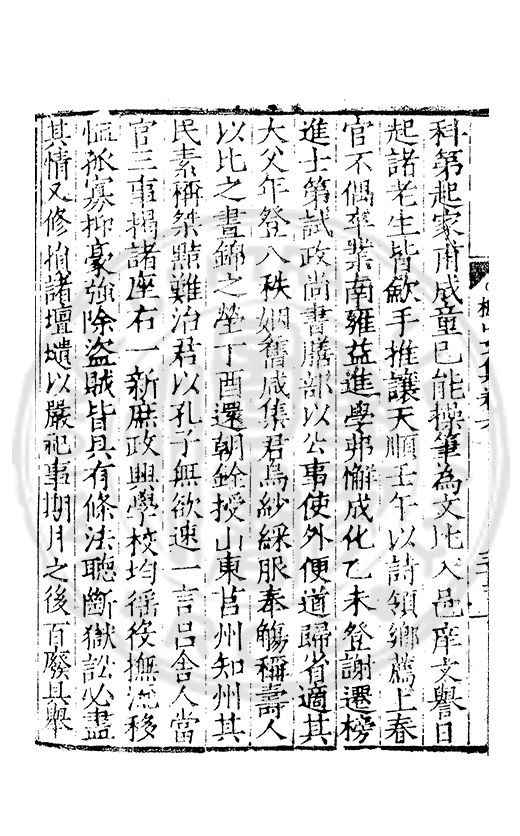 科第起家甫成童已能操筆為文比入邑庠文譽日
起諸老生皆歛手推讓天順壬午以詩領鄉薦上春
官不偶卒業南雍益進學弗懈成化乙未登謝遷榜
進士第試政尚書膳部以公事使外便道歸省適其
大父年登八秩姻舊咸集君烏紗綵服奉觴稱壽人
以比之晝錦之榮丁酉還朝銓授山東莒州知州其
民素稱桀黠難治君以孔子無欲速一言呂舍人當
官三事揭諸座右一新庶政興學校均徭役撫流移
恤孤寡抑豪強除盜賊皆具有條法聽斷獄訟必盡
其情又修拓諸壇壝以嚴祀事期月之後百廢具舉